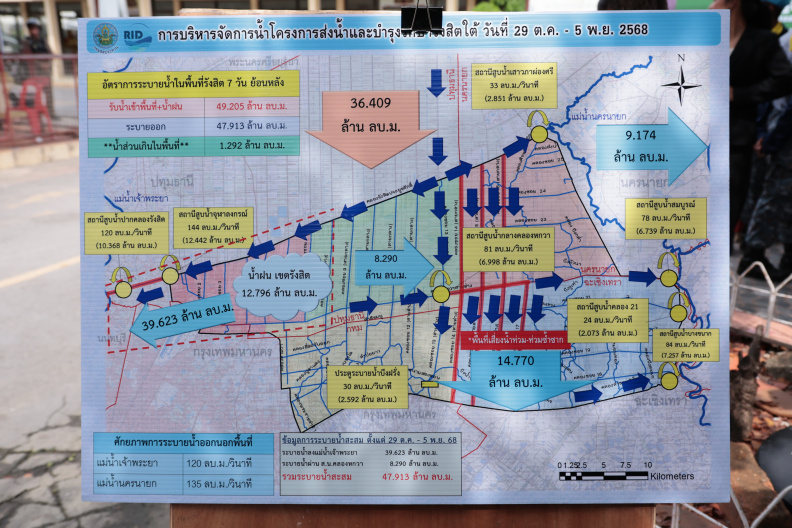 RID การบริหารจัดการน้ำโครงการส่งน้ำและบำรุงรักษารังสิตใต้ วันที่ 29 ต.ค. - 5 พ.ย. 2568
อัตราการระบายน้ำในพื้นที่รังสิต 7 วัน ย้อนหลัง
รับน้ำเข้าพื้นที่+น้ำฝน 49.205 ล้าน ลบ.ม.
ระบายออก 47.913 ล้าน ลบ.ม.
**น้ำส่วนเกินในพื้นที่** 1.292 ล้าน ลบ.ม.
36.409
ล้าน ลบ.ม.
ปทุมธานี
นครนายก
สถานีสูบน้ำเสาวภาผ่องศรี
33 ลบ.ม./วินาที
(2.851 ล้าน ลบ.ม.)
N
แม่น้ำนครนายก
9.174
ล้าน ลบ.ม.
ปทุมธานี
นครนายก
แม่น้ำเจ้าพระยา
สถานีสูบน้ำปากคลองรังสิต
120 ลบ.ม./วินาที
(10.368 ล้าน ลบ.ม.)
สถานีสูบน้ำจุฬาลงกรณ์
144 ลบ.ม./วินาที
(12.442 ล้าน ลบ.ม.)
สถานีสูบน้ำสมบูรณ์
78 ลบ.ม./วินาที
(6.739 ล้าน ลบ.ม.)
สถานีสูบน้ำกลางคลองหกวา
81 ลบ.ม./วินาที
(6.998 ล้าน ลบ.ม.)
8.290
ล้าน ลบ.ม.
น้ำฝน เขตรังสิต
12.796 ล้าน ลบ.ม.
นครนายก
ฉะเชิงเทรา
39.623 ล้าน ลบ.ม.
นนทบุรี
ปทุมธานี
กทม
กรุงเทพมหานคร
สถานีสูบน้ำคลอง 21
24 ลบ.ม./วินาที
(2.073 ล้าน ลบ.ม.)
*พื้นที่เสี่ยงน้ำท่วม-ท่วมซ้ำซาก
สถานีสูบน้ำบางขนาก
84 ลบ.ม./วินาที
(7.257 ล้าน ลบ.ม.)
14.770
ล้าน ลบ.ม.
ประตูระบายน้ำบึงฝรั่ง
30 ลบ.ม./วินาที
(2.592 ล้าน ลบ.ม.)
กรุงเทพมหานคร
ฉะเชิงเทรา
ศักยภาพการระบายน้ำออกนอกพื้นที่
แม่น้ำเจ้าพระยา 120 ลบ.ม/วินาที
แม่น้ำนครนายก 135 ลบ.ม/วินาที
ข้อมูลการระบายน้ำสะสม ตั้งแต่ 29 ต.ค. - 5 พ.ย. 68
ระบายน้ำลงแม่น้ำเจ้าพระยา 39.623 ล้าน ลบ.ม.
ระบายน้ำผ่าน ส.น.คลองหกวา 8.290 ล้าน ลบ.ม.
รวมระบายน้ำสะสม 47.913 ล้าน ลบ.ม.
0 1.25 2.5 5 7.5 10
Kilometers